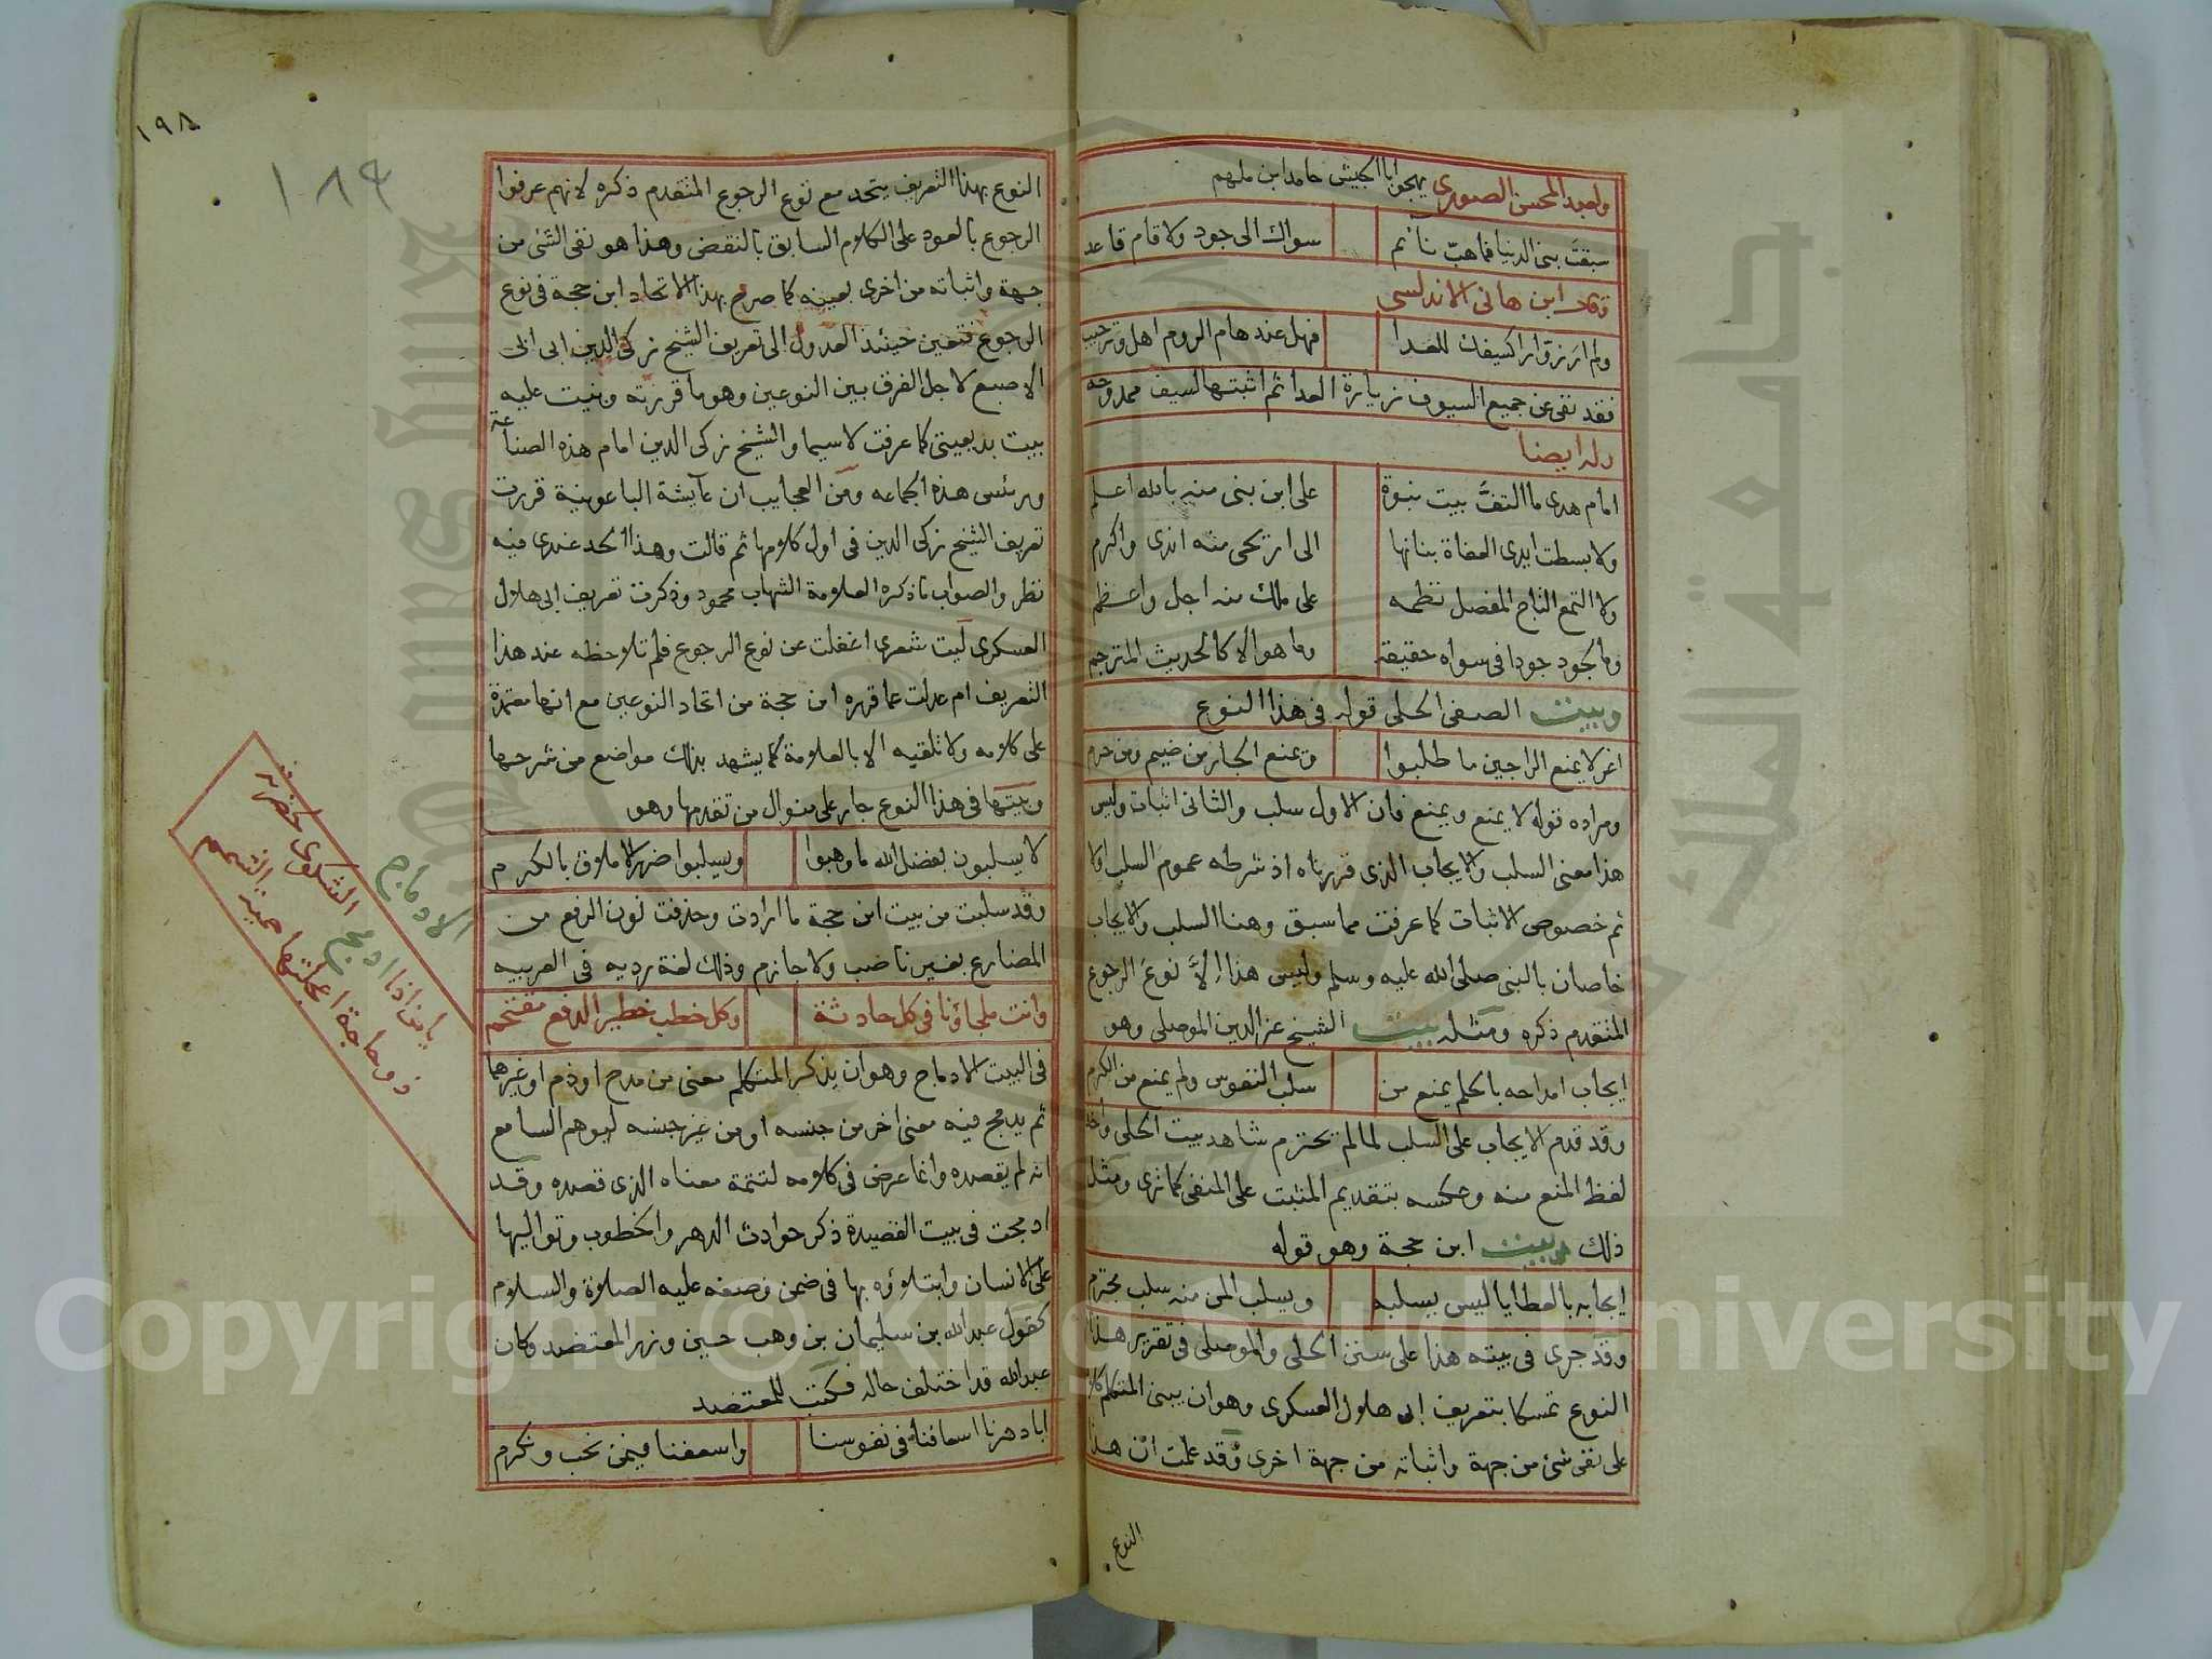 ولعبد المحسن الصورى يهجو ابا الجيش حامد ابن ملهم
سبقت بنى الدنيا فما هبّ نائم سواك الى جود ولا قام قاعد
وقال ابن هانى الاندلسى
ولم ار زوارا كسيفك للعدا فهل عند هام الروم اهل وترحيب
فقد نفى عن جميع السيوف زيارة العدا ثم اثبتها لسيف ممدوحه
وله ايضا
امام هدى ما التفّ بيت نبوة على ابن بنى منه بالله اعلم
ولا بسطت ايدى العفاة بنانها الى اريحى منه اندى واكرم
ولا التمع التاج المفصل نظمه على ملك منه اجل واعظم
وما الجود جودا فى سواه حقيقة وما هو الا كالحديث المترجم
وبيت الصفى الحلى قوله فى هذا النوع
اغر لا يمنع الراجين ما طلبوا ويمنع الجار من ضيم ومن حرم
ومراده قوله لا يمنع ويمنع فان الاول سلب والثانى اثبات وليس
هذا معنى السلب والايجاب الذى قررناه اذ شرطه عموم السلب اولا
ثم خصوص الاثبات كما عرفت مما سبق وهنا السلب والايجاب
خاصان بالنبى صلى الله عليه وسلم وليس هذا الّا نوع الرجوع
المتقدم ذكره ومثله بيت الشيخ عز الدين الموصلى وهو
ايجاب امداحه بالحلم يمنع من سلب النفوس ولم يمنع من الكرم
وقد قدم الايجاب على السلب لما لم تحترم شاهد بيت الحلى واخذ
لفظ المنع منه وعكسه بتقديم المثبت على المنفى كما ترى ومثل
ذلك بيت ابن حجة وهو قوله
ايجابه بالعطايا ليس يسلبه ويسلب المن منه سلب محترم
وقد جرى فى بيته هذا على سنن الحلى والموصلى فى تقرير هذا
النوع تمسكا بتعريف ابى هلال العسكرى وهو ان يبنى المتكلم كلامه
على نفى شئ من جهة واثباته من جهة اخرى وقد علمت ان هذا
النوع
١٩٨
١٨٩
النوع بهذا التعريف يتحد مع نوع الرجوع المتقدم ذكره لانهم عرفوا
الرجوع بالعود على الكلام السابق بالنقض وهذا هو نفى الشئ من
جهة واثباته من اخرى بعينه كما صرح بهذا الاتحاد ابن حجة فى نوع
الرجوع فتعين حينئذ العدول الى تعريف الشيخ زكى الدين ابى ابى
الاصبع لاجل الفرق بين النوعين وهو ما قررته وبنيت عليه
بيت بديعيتى كما عرفت لاسيما والشيخ زكى الدين امام هذه الصناعة
ورئس هذه الجماعه ومن العجايب ان عايشة الباعونية قررت
تعريف الشيخ زكى الدين فى اول كلامها ثم قالت وهذا الحد عندى فيه
نظر والصواب ما ذكره العلامة الشهاب محمود وذكرت تعريف ابى هلال
العسكرى ليت شعرى اغفلت عن نوع الرجوع فلم تلاحظه عند هذا
التعريف ام عدلت عما قرره ابن حجة من اتحاد النوعين مع انها معتمدة
على كلامه ولا تلقيه الا بالعلامة كما يشهد بذلك مواضع من شرحها
وبيتها فى هذا النوع جار على منوال من تقدمها وهو
لا يسلبون بفضل الله ما وهبوا ويسلبوا ضرر الاملاق بالكرم
وقد سلبت من بيت ابن حجة ما ارادت وحذفت نون الرفع من
المضارع بغير ناصب ولا جازم وذلك لغة رديه فى العربيه
وانت ملجاؤنا فى كل حادثة وكل خطب خطير الدفع مقتحم
فى البيت الادماج وهو ان يذكر المتكلم معنى من مدح او ذم او غيرهما
ثم يدمج فيه معنى اخر من جنسه او من غير جنسه ليوهم السامع
انه لم يقصده وانما عرض فى كلامه لتتمة معناه الذى قصده وقد
ادمجت فى بيت القصيدة ذكر حوادث الدهر والخطوب وتواليها
على الانسان وابتلاؤه بها فى ضمن وصفه عليه الصلاة والسلام
كقول عبد الله بن سليمان بن وهب حين وزر المعتضد وكان
عبد الله قد اختلف حاله فكتب للمعتضد
ابا دهرنا اسعافنا فى نفوسنا واسعفنا فيمن نحب ونكرم
الادماج
يا من اذا ادمج الشكوى لحضرته
ذو حاجة اعجلتها حميز الشمم
جامعة الملك
King Saud
Copyright © King Saud University